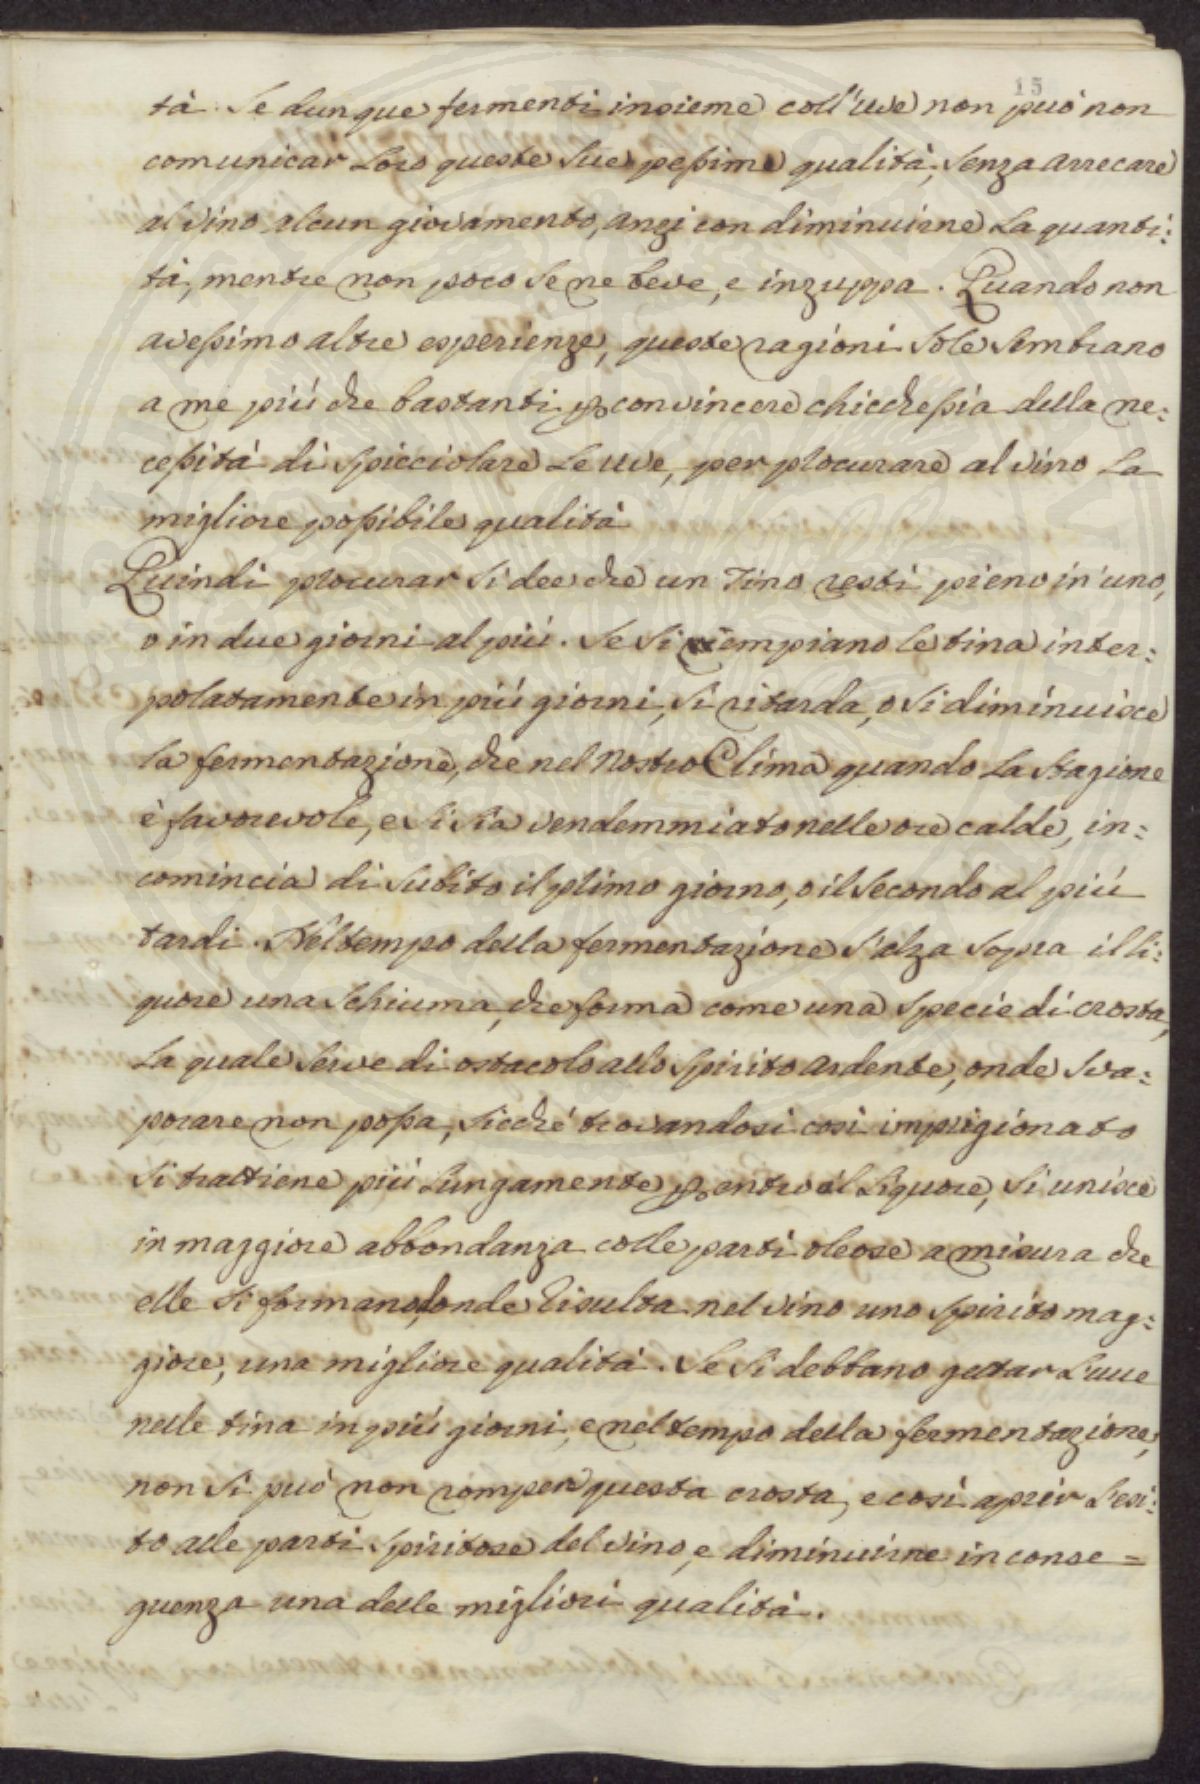 15
tà. Se dunque fermenti insieme coll'uve non può non
comunicar Loro queste Sue peßime qualità, Senza arrecare
al Vino alcun giovamento, anzi con diminuirne La quanti:
tà, mentre non poco Se ne beve, e inzuppa. Quando non
aveßimo altre esperienze, queste ragioni Sole Sembrano
a me più che bastanti p convincere chiccheßia della ne:
ceßità di Spicciolare Le uve, per procurare al Vino La
migliore poßibile qualità
Quindi procurar Si dee che un Tino resti pieno in'uno,
o in due giorni al più. Se Si riempiano le tina inter:
polatamente in più giorni, Si ritarda, o Si diminuisce
la fermentazione, che nel nostro Clima quando La Stagione
è favorevole, e Si Sia Vendemmiato nelle ore calde, in:
comincia di Subito il primo giorno, o il Secondo al più
tardi. Nel tempo della fermentazione S'alza Sopra il li:
quore una Schiuma, che forma come una Specie di crosta,
La quale Serve di ostacolo allo Spirito ardente, onde Sva:
porare non poßa, Sicché trovandosi così imprigionato
Si trattiene più Lungamente p entro il Liquore, Si unisce
in maggiore abbondanza colle parti oleose a misura che
elle Si formano, onde Risulta nel Vino uno Spirito mag:
giore, una migliore qualità. Se Si debbano gettar L'uve
nelle tina in più giorni, e nel tempo della fermentazione,
non Si può non rompere questa crosta, e così aprir L'esi:
to alle parti Spiritose del Vino, e diminuirne in conse=
guenza una delle migliori qualità.